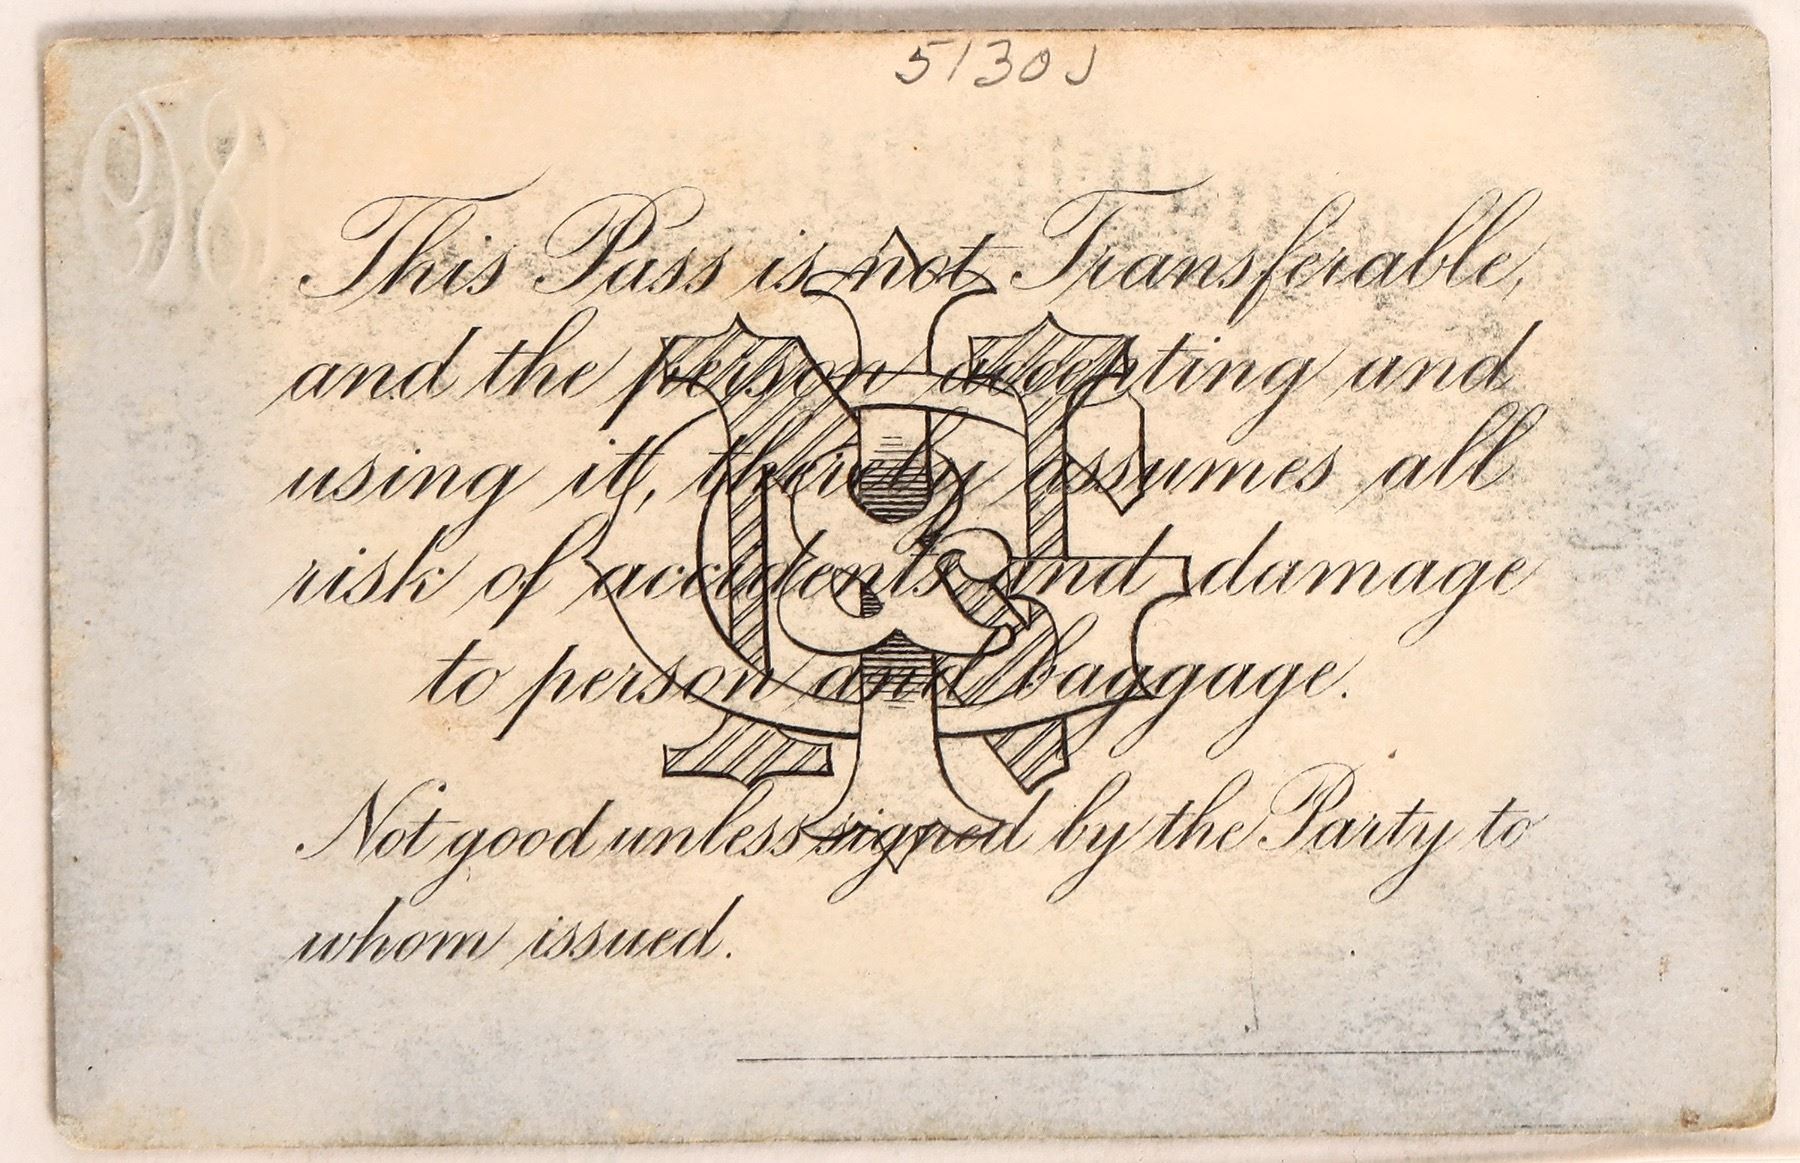 5130J
This Pass is not Transferable,
and the person accepting and
using it, thereby assumes all
risk of accidents and damage
to person and baggage.
Not good unless signed by the Party to
whom issued.